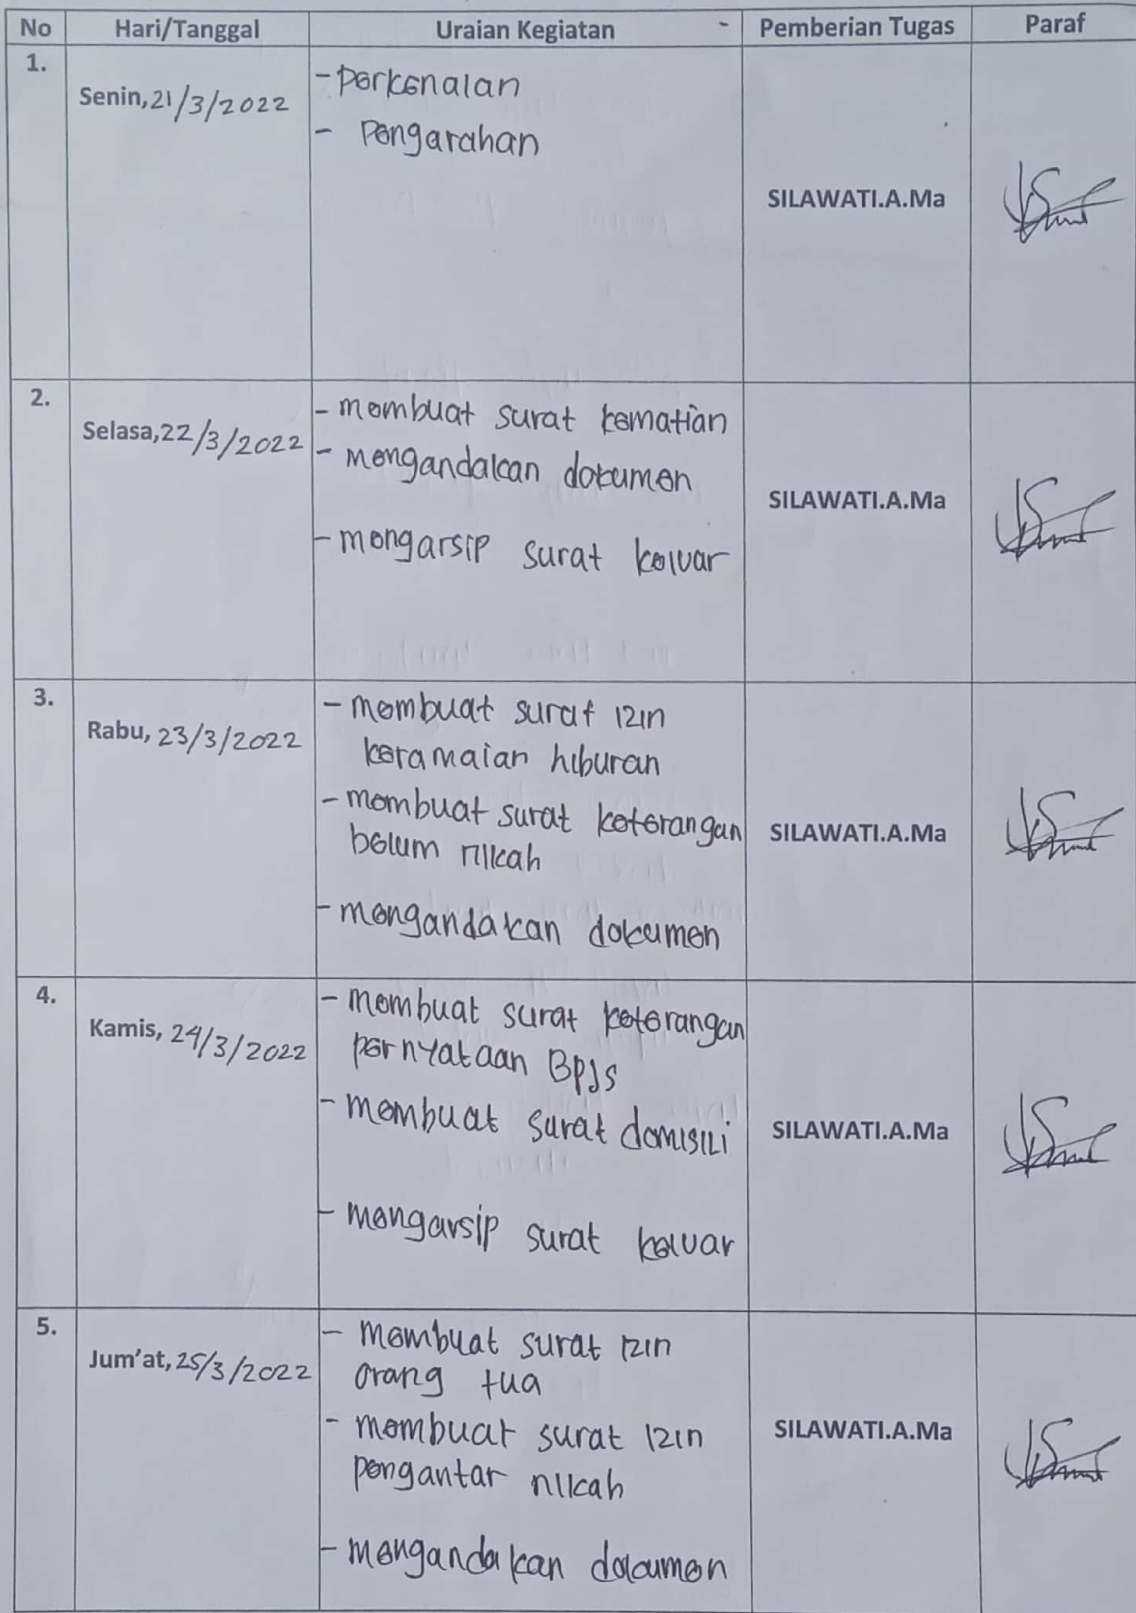 No Hari/Tanggal Uraian Kegiatan - Pemberian Tugas Paraf
1.
Senin, 21/3/2022
- perkenalan
- pengarahan
SILAWATI.A.Ma
2.
Selasa, 22/3/2022
- membuat surat kematian
- mengandakan dokumen
- mengarsip surat keluar
SILAWATI.A.Ma
3.
Rabu, 23/3/2022
- membuat surat izin
keramaian hiburan
- membuat surat keterangan
belum nikah
- mengandakan dokumen
SILAWATI.A.Ma
4.
Kamis, 24/3/2022
- membuat surat keterangan
pernyataan BPJS
- membuat surat domisili
- mengarsip surat keluar
SILAWATI.A.Ma
5.
Jum'at, 25/3/2022
- membuat surat izin
orang tua
- membuat surat izin
pengantar nikah
- mengandakan dokumen
SILAWATI.A.Ma